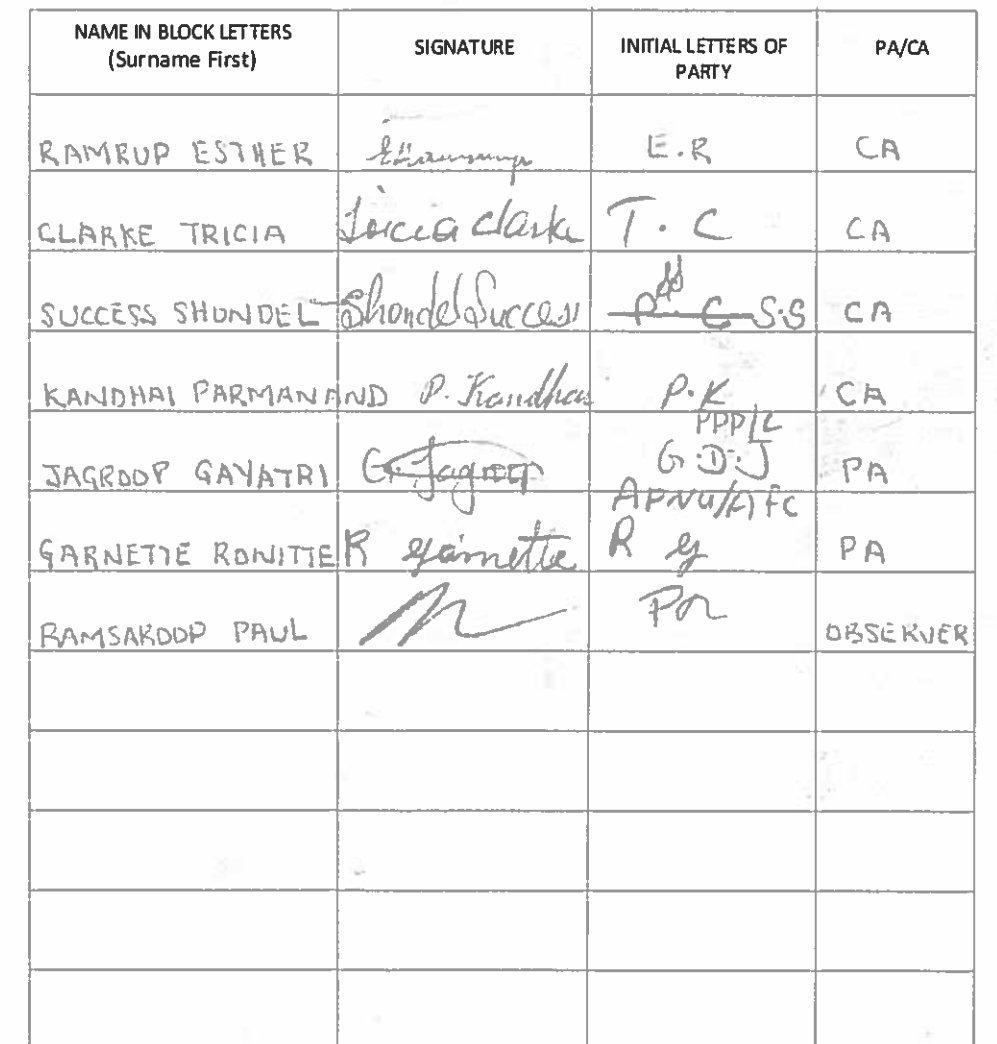 NAME IN BLOCK LETTERS (Surname First) SIGNATURE INITIAL LETTERS OF PARTY PA/CA
RAMRUP ESTHER E.R CA
CLARKE TRICIA Tricia Clarke T.C CA
SUCCESS SHONDEL Shondel Success P C S.S CA
KANDHAI PARMANAND P. Kandhai P.K CA
PPP/C
JAGROOP GAYATRI G. Jagroop G.D.J PA
APNU/AFC
GARNETTE RONITTE R Garnette R G PA
RAMSAROOP PAUL PR OBSERVER